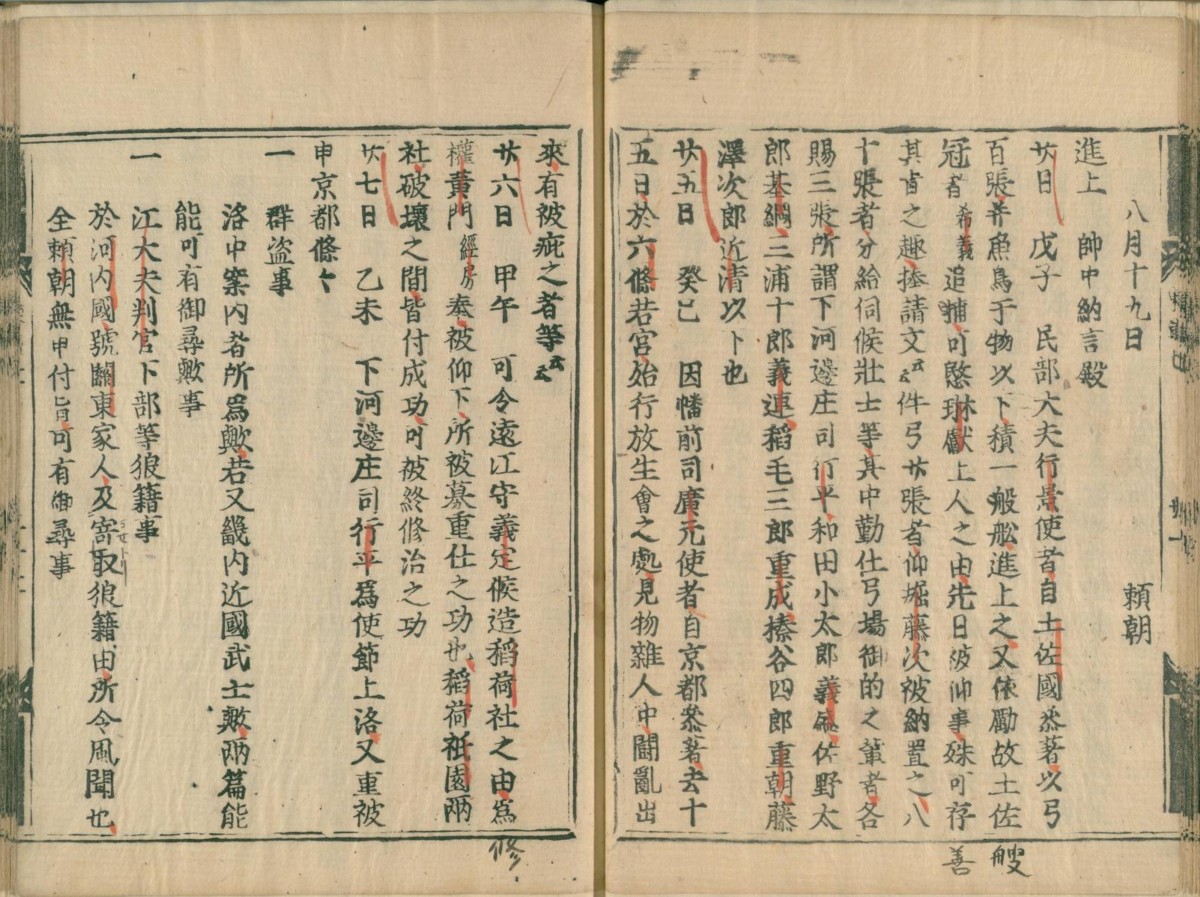 八月十九日 頼朝
進上 帥中納言殿
廿日 戊子 民部大夫行景使者自土佐國参著以弓
百張并魚鳥干物以下積一般舩進上之又依勵故土佐
冠者希義追捕可愍琳獻上人之由先日被仰事殊可存
其旨之趣捧請文云々件弓廿張者仰堀藤次被納置之八
十張者分給伺候壯士等其中勤仕弓場御的之輩者各
賜三張所謂下河邊庄司行平和田小太郎義盛佐野太
郎基綱三浦十郎義連稻毛三郎重成榛谷四郎重朝藤
澤次郎近清以下也
廿五日 癸巳 因幡前司廣元使者自京都参著去十
五日於六條若宮始行放生會之處見物雜人中鬪亂出
艘
善
來有被疵之者等云々
廿六日 甲午 可令遠江守義定候造稻荷社之由爲
權黄門經房奉被仰下所被募重仕之功也稻荷祇園兩
社破壊之間皆付成功可被終修治之功
廿七日 乙未 下河邊庄司行平爲使節上洛又重被
申京都條々
一 群盗事
洛中案内者所爲歟若又畿内近國武士歟兩篇能
能可有御尋歟事
一 江大夫判官下部等狼籍事
於河内國號關東家人及寄取狼籍由所令風聞也
全頼朝無申付旨可有御尋事
修